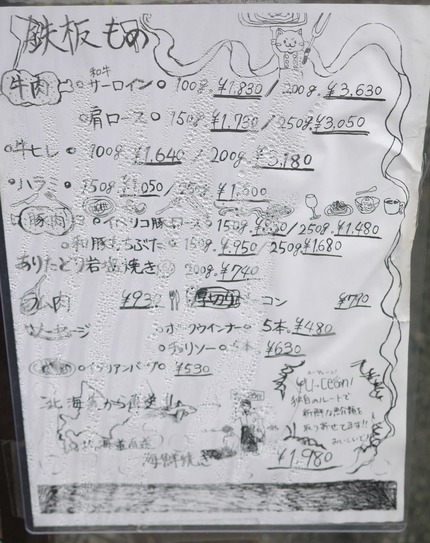 鉄板もの
牛肉 和牛 サーロイン 100g. ¥1,830 / 200g. ¥3,630
肩ロース 150g. ¥1,750 / 250g ¥3,050
牛ヒレ 100g ¥1,640 / 200g. ¥3,180
ハラミ 150g ¥1,050 / 250g ¥1,500
豚肉 イベリコ豚 ロース 150g. / 250g. ¥1,480
和豚もちぶた 150g. ¥950 / 250g ¥1,680
ありたどり岩塩焼き 200g. ¥740
¥930 厚切り コン ¥790
ソーセージ ポークウインナー 5本. ¥480
チョリソー 5本 ¥630
イタリアンハーブ ¥530
北海道から直送!!
独自のルートで
新鮮な魚介類を
取り寄せてます!!
おいしいで
海鮮焼き ¥1,980